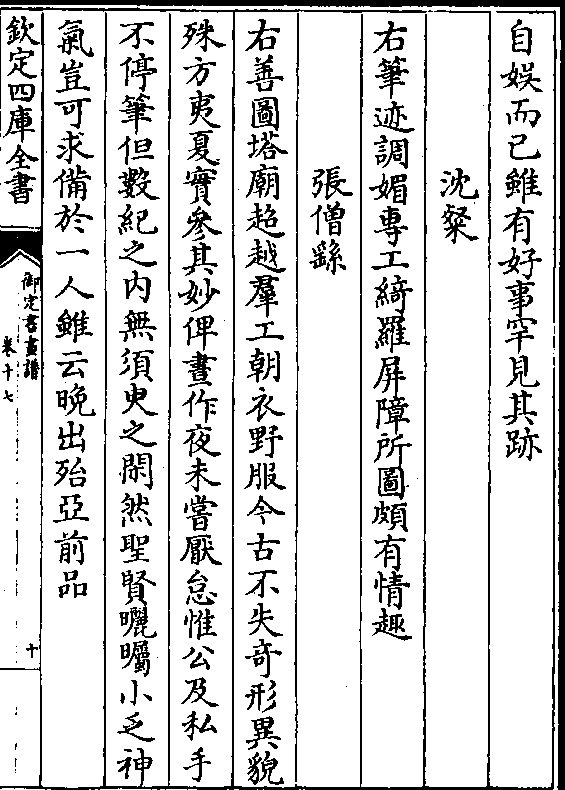 自娛而已雖有好事罕見其跡
沈粲
右筆迹調媚專工綺羅屏障所圖頗有情趣
張僧繇
右善圖塔廟超越羣工朝衣野服今古不失奇形異貌
殊方夷夏實參其妙俾晝作夜未嘗厭怠惟公及私手
不停筆但數紀之内無須臾之閑然聖賢曬矚小乏神
氣豈可求備於一人雖云晚出殆亞前品
欽定四庫全書
御定書畫譜
卷十七
十